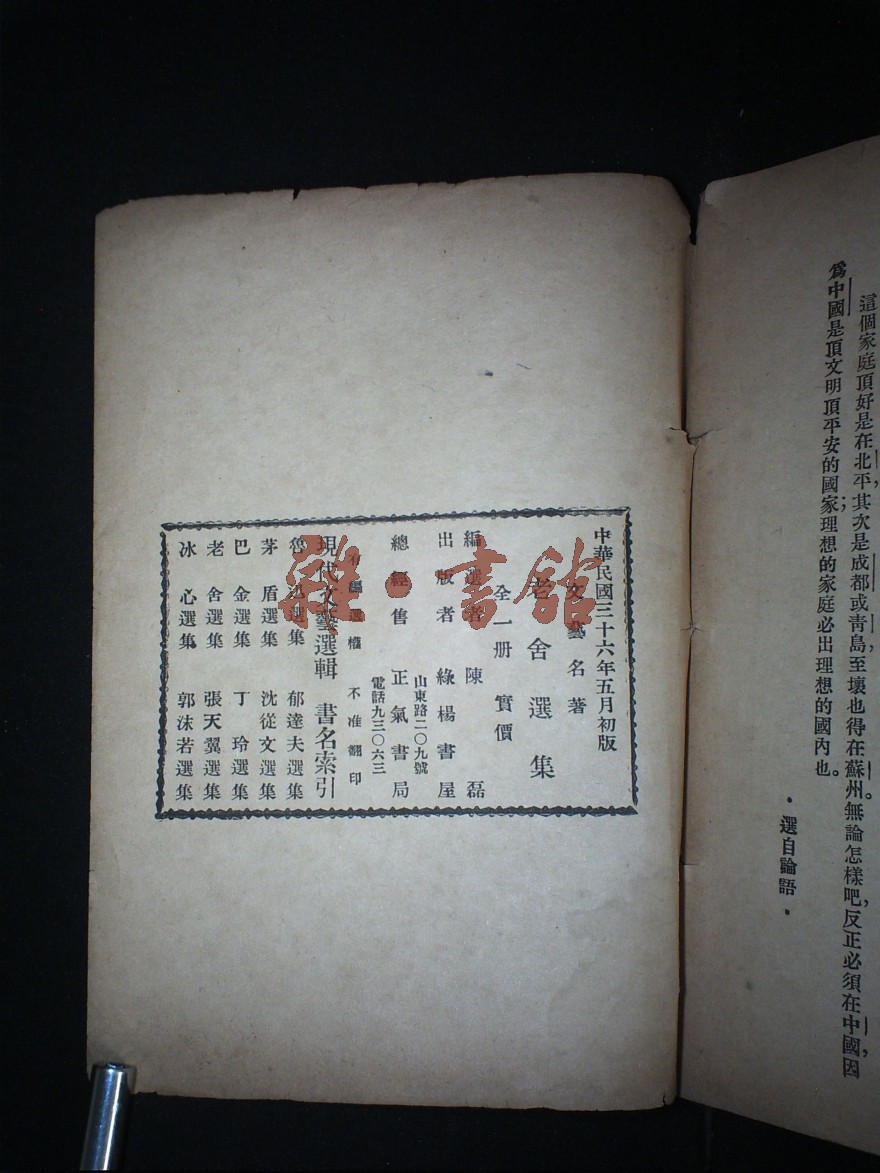 這個家庭頂好是在北平,其次是成都或青島,至壞也得在蘇州。無論怎樣吧,反正必須在中國,因
爲中國是頂文明頂平安的國家;理想的家庭必出理想的國內也。
·選自論語·
中華民國三十六年五月初版
文藝名著
老舍選集
全一册 實價
編選者 陳磊
出版者 綠楊書屋
山東路二〇九號
總經售 正氣書局
電話九三〇六三
有編選權 不准翻印
現代文藝選輯 書名索引
魯迅選集 郁達夫選集
茅盾選集 沈從文選集
巴金選集 丁玲選集
老舍選集 張天翼選集
冰心選集 郭沫若選集
雜·書館